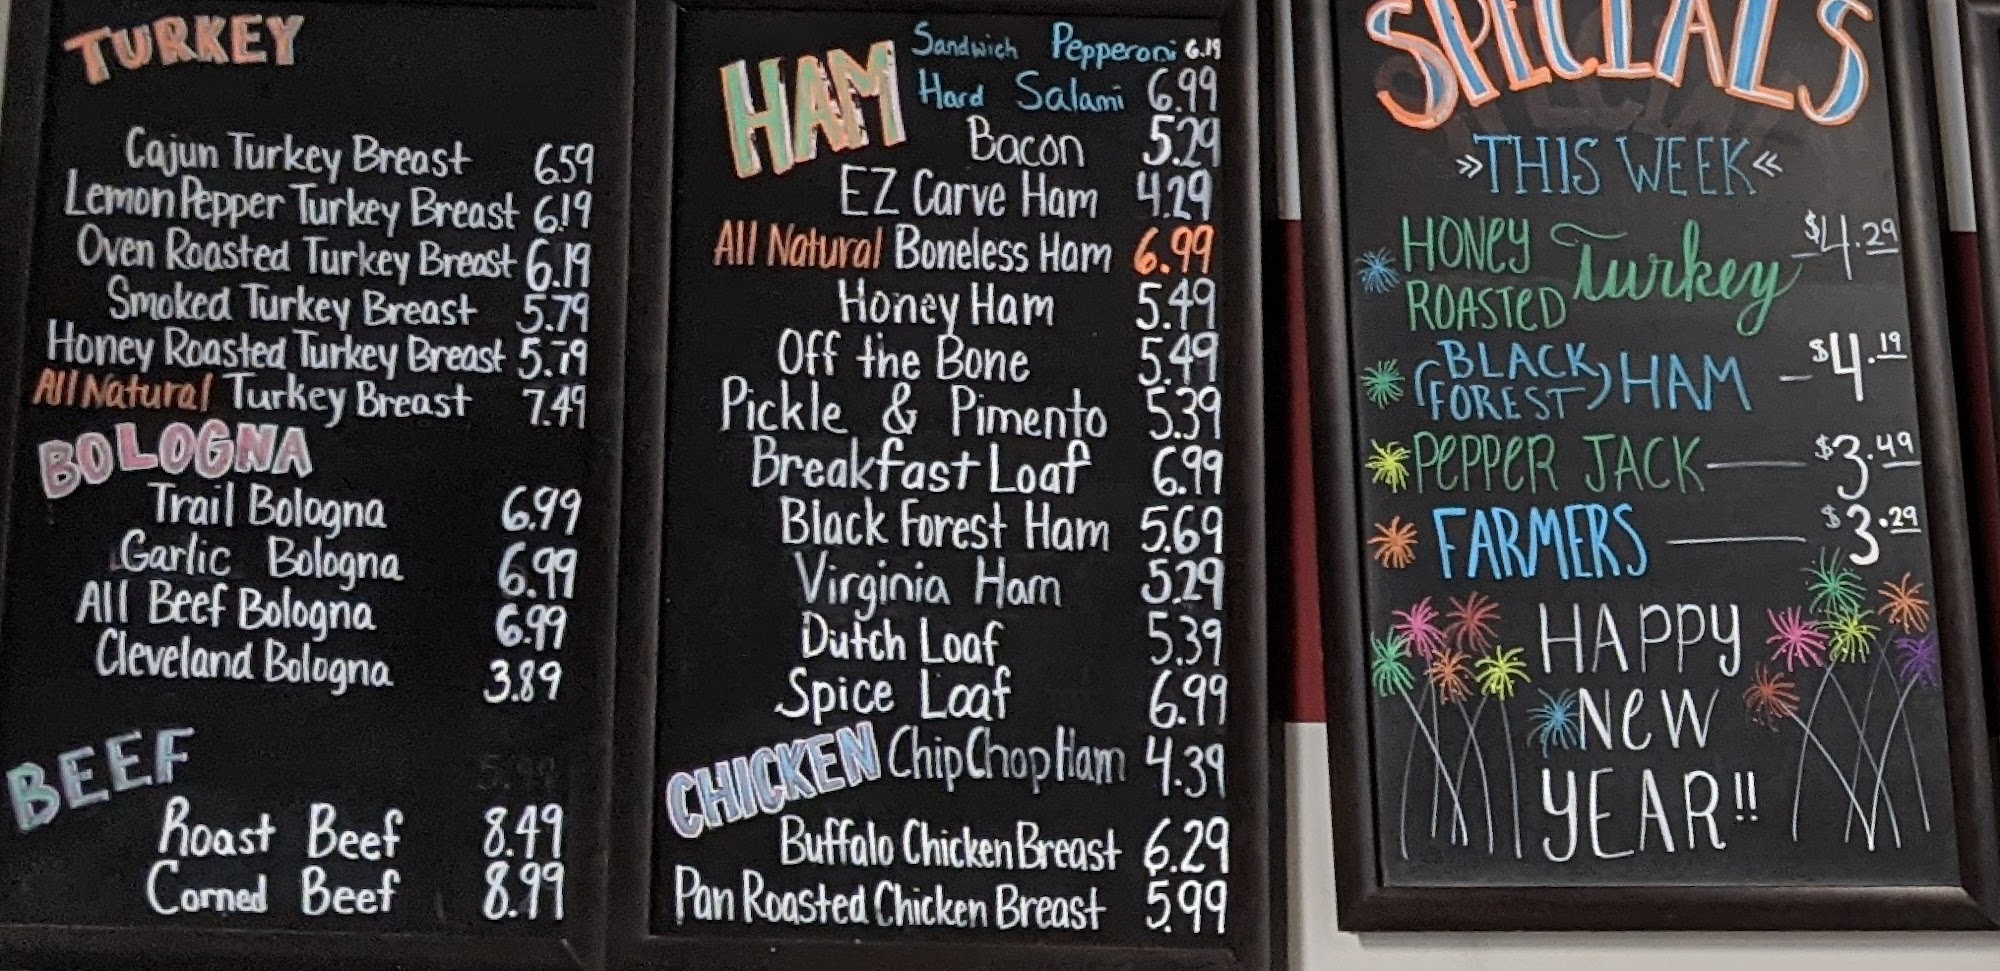 TURKEY
Cajun Turkey Breast 6.59
Lemon Pepper Turkey Breast 6.19
Oven Roasted Turkey Breast 6.19
Smoked Turkey Breast 5.79
Honey Roasted Turkey Breast 5.79
All Natural Turkey Breast 7.49
BOLOGNA
Trail Bologna 6.99
Garlic Bologna 6.99
All Beef Bologna 6.99
Cleveland Bologna 3.89
BEEF
Roast Beef 8.49
Corned Beef 8.99
Sandwich Pepperoni 6.19
HAM Hard Salami 6.99
Bacon 5.29
EZ Carve Ham 4.29
All Natural Boneless Ham 6.99
Honey Ham 5.49
Off the Bone 5.49
Pickle & Pimento 5.39
Breakfast Loaf 6.99
Black Forest Ham 5.69
Virginia Ham 5.29
Dutch Loaf 5.39
Spice Loaf 6.99
CHICKEN Chip Chop Ham 4.39
Buffalo Chicken Breast 6.29
Pan Roasted Chicken Breast 5.99
SPECIALS
»THIS WEEK«
HONEY ROASTED Turkey - $4.29
(BLACK FOREST) HAM - $4.19
PEPPER JACK - $3.49
FARMERS - $3.29
HAPPY
NEW
YEAR!!